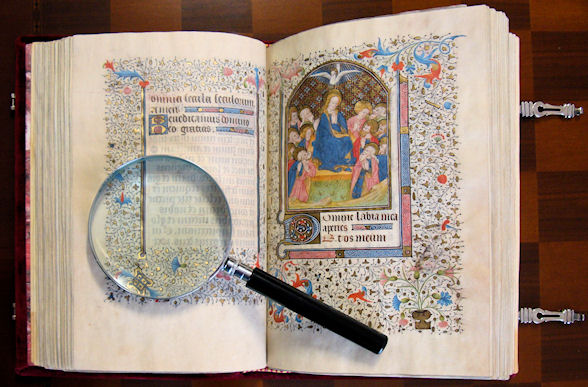 omnia secula seculorum
Amen
Benedicamus domino
Deo gratias
Domine labia mea
aperies
Et os meum